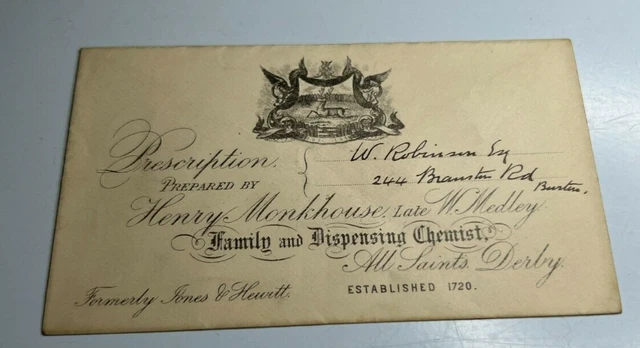 Prescription.
PREPARED BY
W. Robinson Esq
244 Branston Rd
Burton.
Henry Monkhouse, Late W. Medley.
Family and Dispensing Chemist,
All Saints, Derby.
Formerly Jones & Hewitt.
ESTABLISHED 1720.